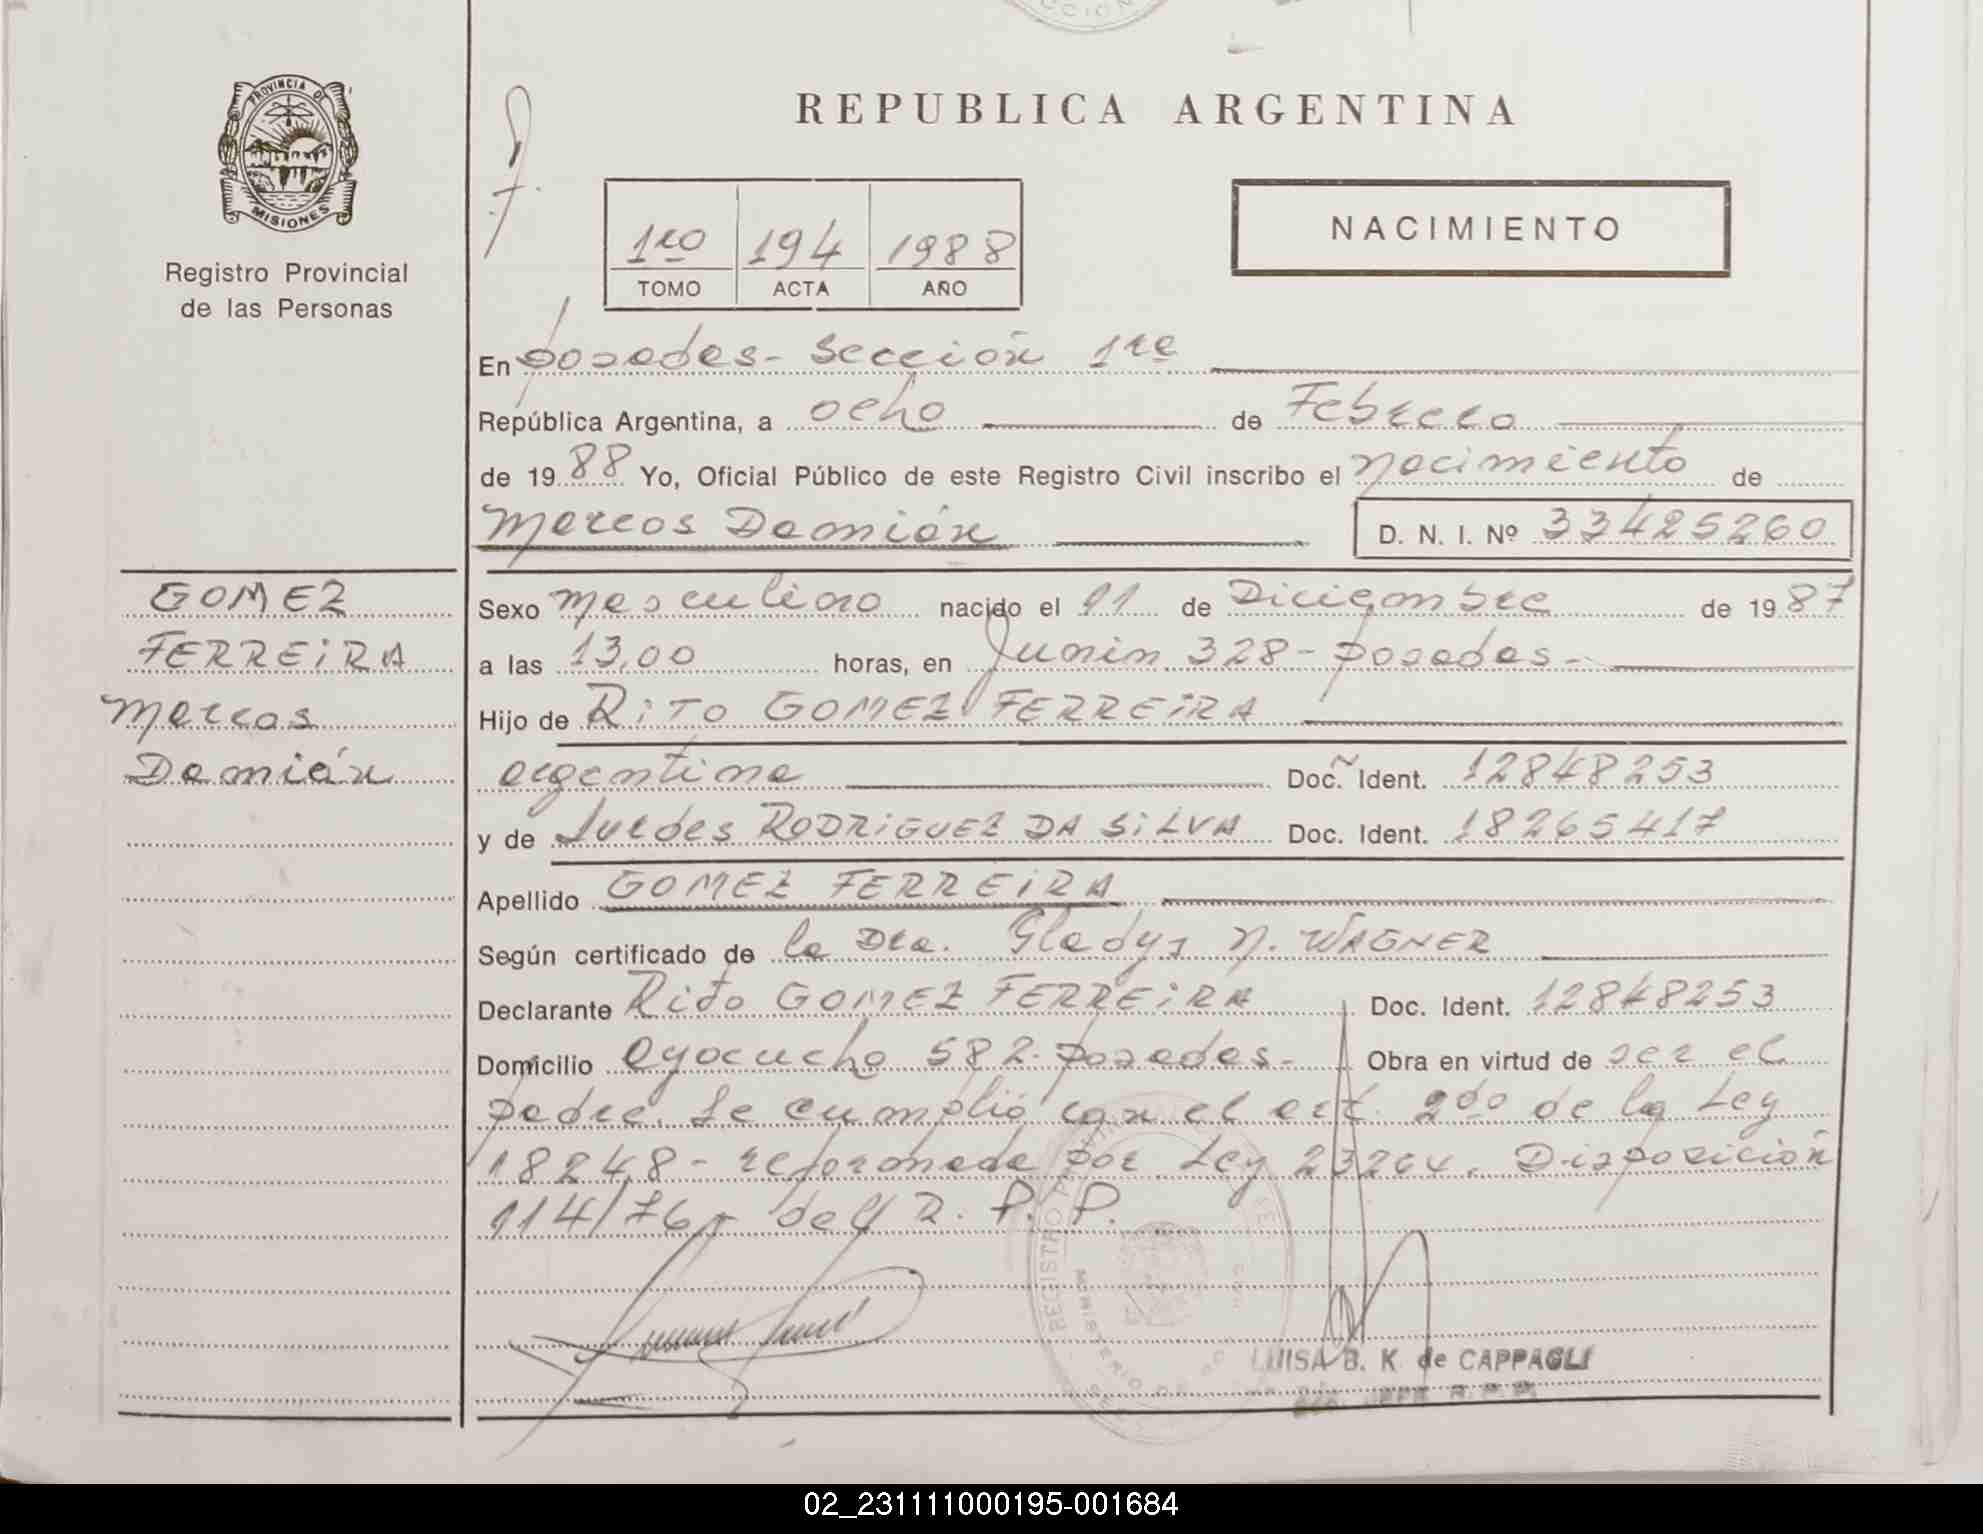 CCION
PROVINCIA DE
MISIONES
Registro Provincial
de las Personas
REPUBLICA ARGENTINA
1ro 194 1988
TOMO ACTA AÑO
NACIMIENTO
En Posadas - Sección 1ra
República Argentina, a ocho de Febrero
de 1988 Yo, Oficial Público de este Registro Civil inscribo el nacimiento de
Marcos Damián D. N. I. Nº 33425260
GOMEZ
FERREIRA
Marcos
Damián
Sexo masculino nacido el 11 de Diciembre de 1987
a las 13,00 horas, en Junin 328 - Posadas -
Hijo de Rito GOMEZ FERREIRA
argentina Doc. Ident. 12848253
y de Lurdes RODRIGUEZ DA SILVA Doc. Ident. 18265417
Apellido GOMEZ FERREIRA
Según certificado de la Dra. Gladys N. WAGNER
Declarante Rito GOMEZ FERREIRA Doc. Ident. 12848253
Domicilio Ayacucho 582 - Posadas - Obra en virtud de ser el
padre. Se cumplió con el art. 2do de la Ley
18248 - reformada por Ley 23264. Disposición
114/76 - del R. P. P.
REGISTRO
MINISTERIO DE
LUISA B. K. de CAPPAGLI
02_231111000195-001684